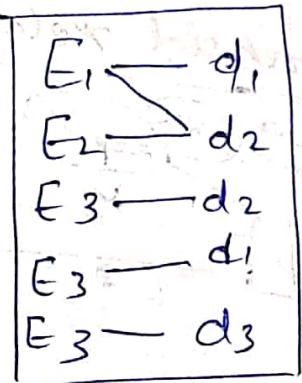 E1 — d1
E2 — d2
E3 — d2
E3 — d1
E3 — d3